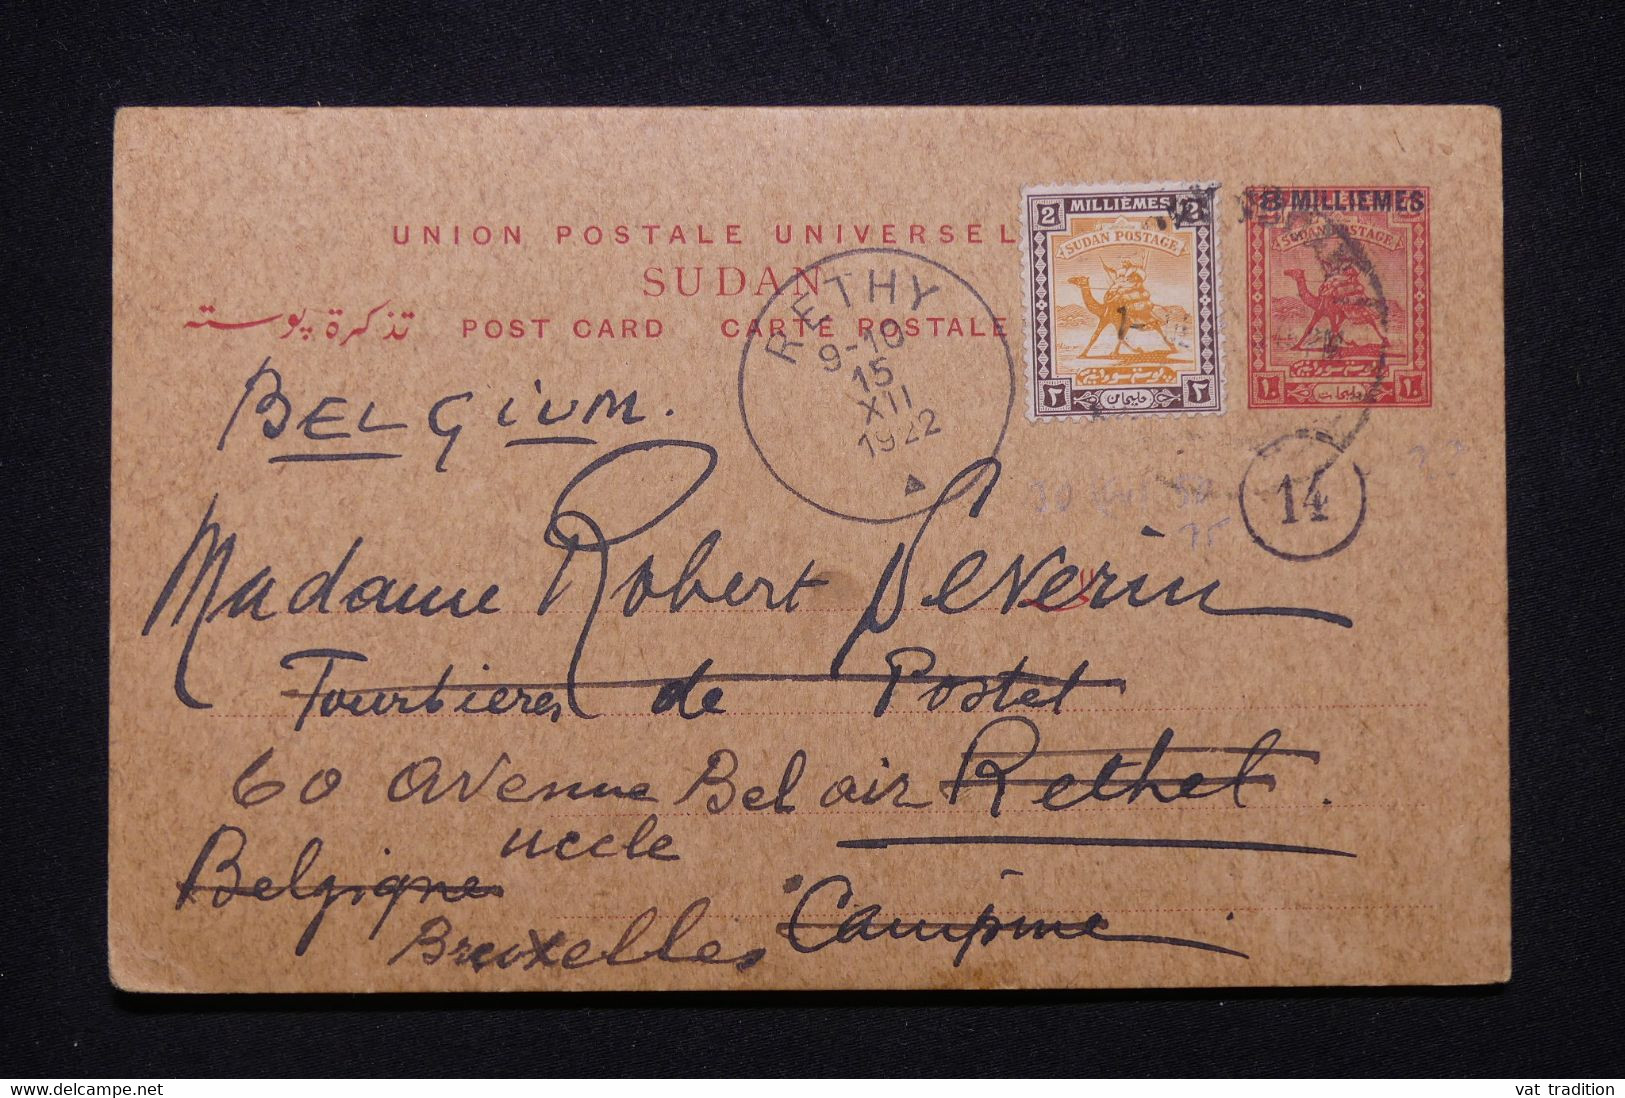 UNION POSTALE UNIVERSEL
SUDAN
تذكرة پوسته POST CARD CARTE POSTALE
2 MILLIÈMES 2
SUDAN POSTAGE
٢ مليمان ٢
8 MILLIEMES
SUDAN POSTAGE
١٠ مليمات ١٠
RETHY
9-10
15
XII
1922
14
BELGIUM.
Madame Robert Severin
Tourbieres de Postel
60 avenue Bel air Rethel.
Uccle
Belgique
Bruxelles Campine
vat tradition